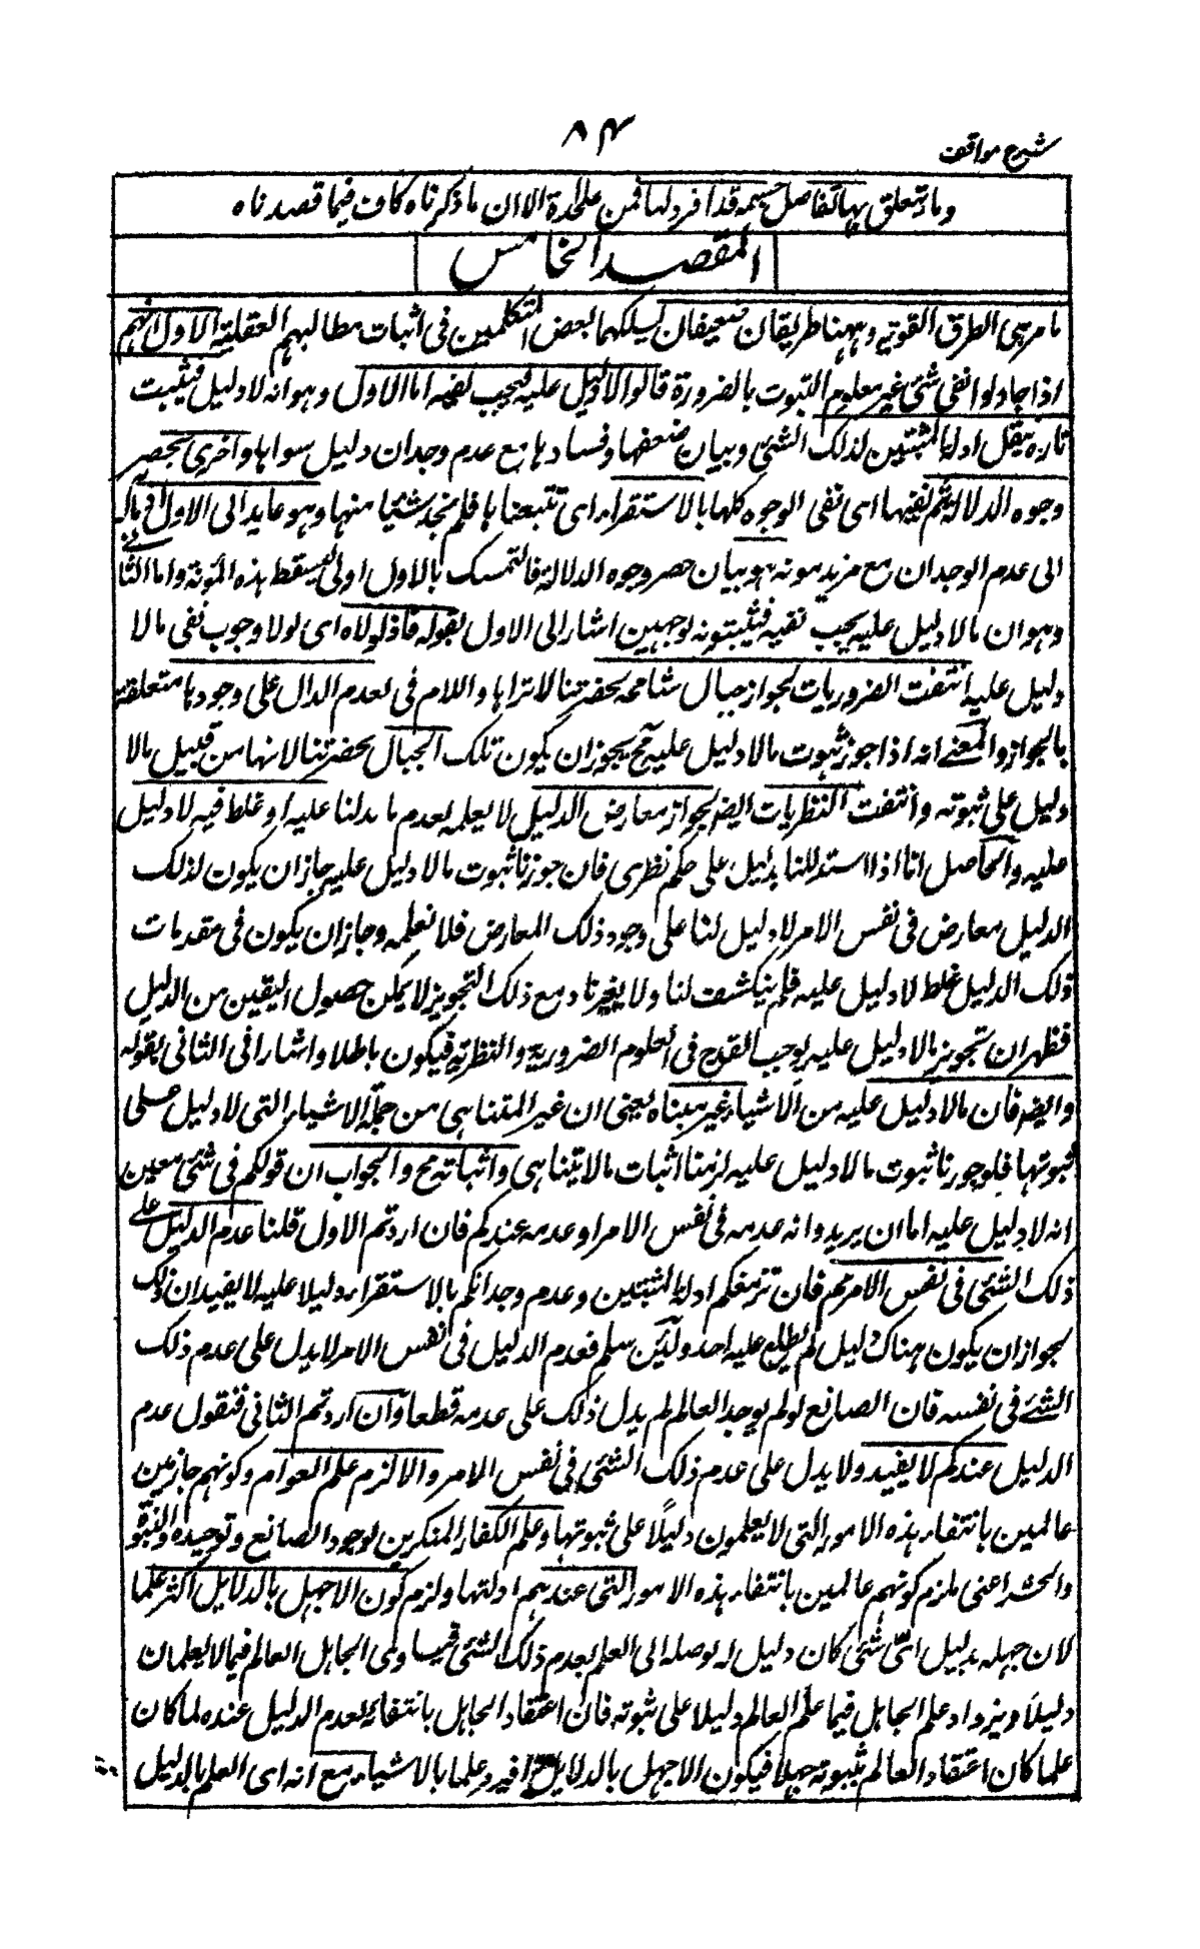 شرح مواقف
۸۴
وما يتعلق بها تفاصيل جسيمة قد افرد لها فمن على حدة الا ان ما ذكرناه كاف فيما قصدناه
المقصد الخامس
ما مر هى الطرق القوية وههنا طريقان ضعيفان يسلكهما بعض المتكلمين فى اثبات مطالبهم العقلية الاول انهم
اذا حاولوا نفى شئ غير معلوم الثبوت بالضرورة قالوا لا دليل عليه فيجب نفيه اما الاول وهو انه لا دليل فيثبت
تارة بنقل ادلة المثبتين لذلك الشئ وبيان ضعفها وفسادها مع عدم وجدان دليل سواها واخرى بحصر
وجوه الدلالة ثم نفيها اى نفى الوجوه كلها بالاستقراء اى تتبعناها فلم نجد شيئا منها وهو عايد الى الاول
الى عدم الوجدان مع مزيد مونة هو بيان حصر وجوه الدلالة فالتمسك بالاول اولى ليسقط هذه المؤنة واما الثانى
وهو ان ما لا دليل عليه يجب نفيه فيثبتونه لوجهين اشار الى الاول بقوله فاذ لولاه اى لولا وجوب نفى ما لا
دليل عليه انتفت الضروريات لجواز جبال شامخة بحضرتنا لا نراها واللام فى لعدم الدال على وجودها متعلقة
بالجواز والمعنے انه اذا جوز ثبوت ما لا دليل عليه ج يجوز ان يكون تلك الجبال بحضرتنا لانها من قبيل ما لا
دليل على ثبوته وانتفت النظريات ايض لجواز معارض الدليل لا يعلمه لعدم ما يدلنا عليه او غلط فيه لا دليل
عليه والحاصل انا اذا استدللنا بدليل على حكم نظرى فان جوزنا ثبوت ما لا دليل عليه جاز ان يكون لذلك
الدليل معارض فى نفس الامر لا دليل لنا على وجود ذلك المعارض فلا نعلمه وجاز ان يكون فى مقدمات
ذلك الدليل غلط لا دليل عليه فلم ينكشف لنا ولا لغيرنا ومع ذلك التجويز لا يمكن حصول اليقين من الدليل
فظهر ان تجويز ما لا دليل عليه يوجب القدح فى العلوم الضرورية والنظرية فيكون باطلا واشار الى الثانى بقوله
وايضه فان ما لا دليل عليه من الاشياء غير متناه يعنى ان غير المتناهى من جملة الاشياء التى لا دليل على
ثبوتها فلو جوزنا ثبوت ما لا دليل عليه لزمنا اثبات ما لا يتناهى واثباته مح والجواب ان قولكم فى شئ معين
انه لا دليل عليه اما ان يريدوا به عدمه فى نفس الامر او عدمه عندكم فان اردتم الاول قلنا عدم الدليل على
ذلك الشئ فى نفس الامر مم فان تزييفكم ادلة المثبتين وعدم وجدانكم بالاستقراء دليلا عليه لا يفيد ان ذلك
لجواز ان يكون هناك دليل لم يطلع عليه احد ولئن سلم فعدم الدليل فى نفس الامر لا يدل على عدم ذلك
الشئے فى نفسه فان الصانع لو لم يوجد العالم لم يدل ذلك على عدمه قطعا وان اردتم الثانى فنقول عدم
الدليل عندكم لا يفيد ولا يدل على عدم ذلك الشئ فى نفس الامر والا لزم علم العوام وكونهم جازمين
عالمين بانتفاء هذه الامور التى لا يعلمون دليلًا على ثبوتها وعلم الكفار المنكرين لوجود الصانع وتوحيده والنبوة
والحشر اعنى ملزم كونهم عالمين بانتفاء هذه الامور التى عندهم ادلتها ولزم كون الاجهل بالدلايل اكثر علما
لان جهله بدليل اىّ شئ كان دليل له يوصله الى العلم بعدم ذلك الشئ فيساوى الجاهل العالم فيما لا يعلمان
دليلا ويزداد علم الجاهل فيما علم العالم دليلا على ثبوته فان اعتقاد الجاهل بانتفائه لعدم الدليل عنده لما كان
علما كان اعتقاد العالم بثبوته جهلا فيكون الاجهل بالدلايل اوفر علما بالاشياء مع انه اى العلم بالدليل